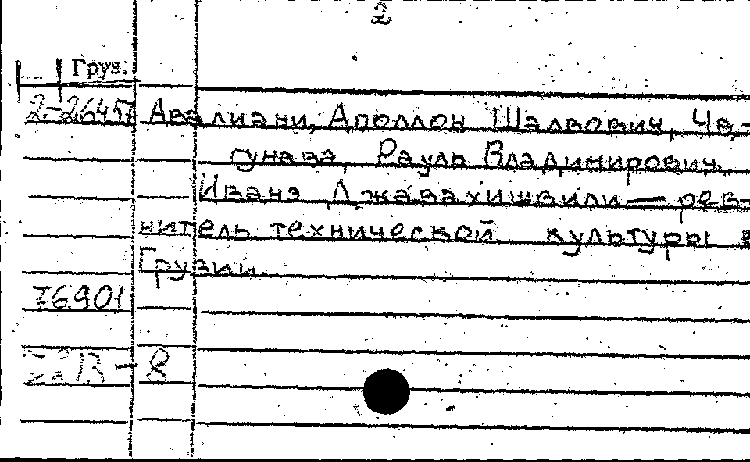 2
Груз.
2-26457 Авалиани, Аполлон Шалвович, Ча-
гунава, Рауль Владимирович.
Иванэ Джавахишвили — рев-
нитель технической культуры в
Грузии.
76.901
8